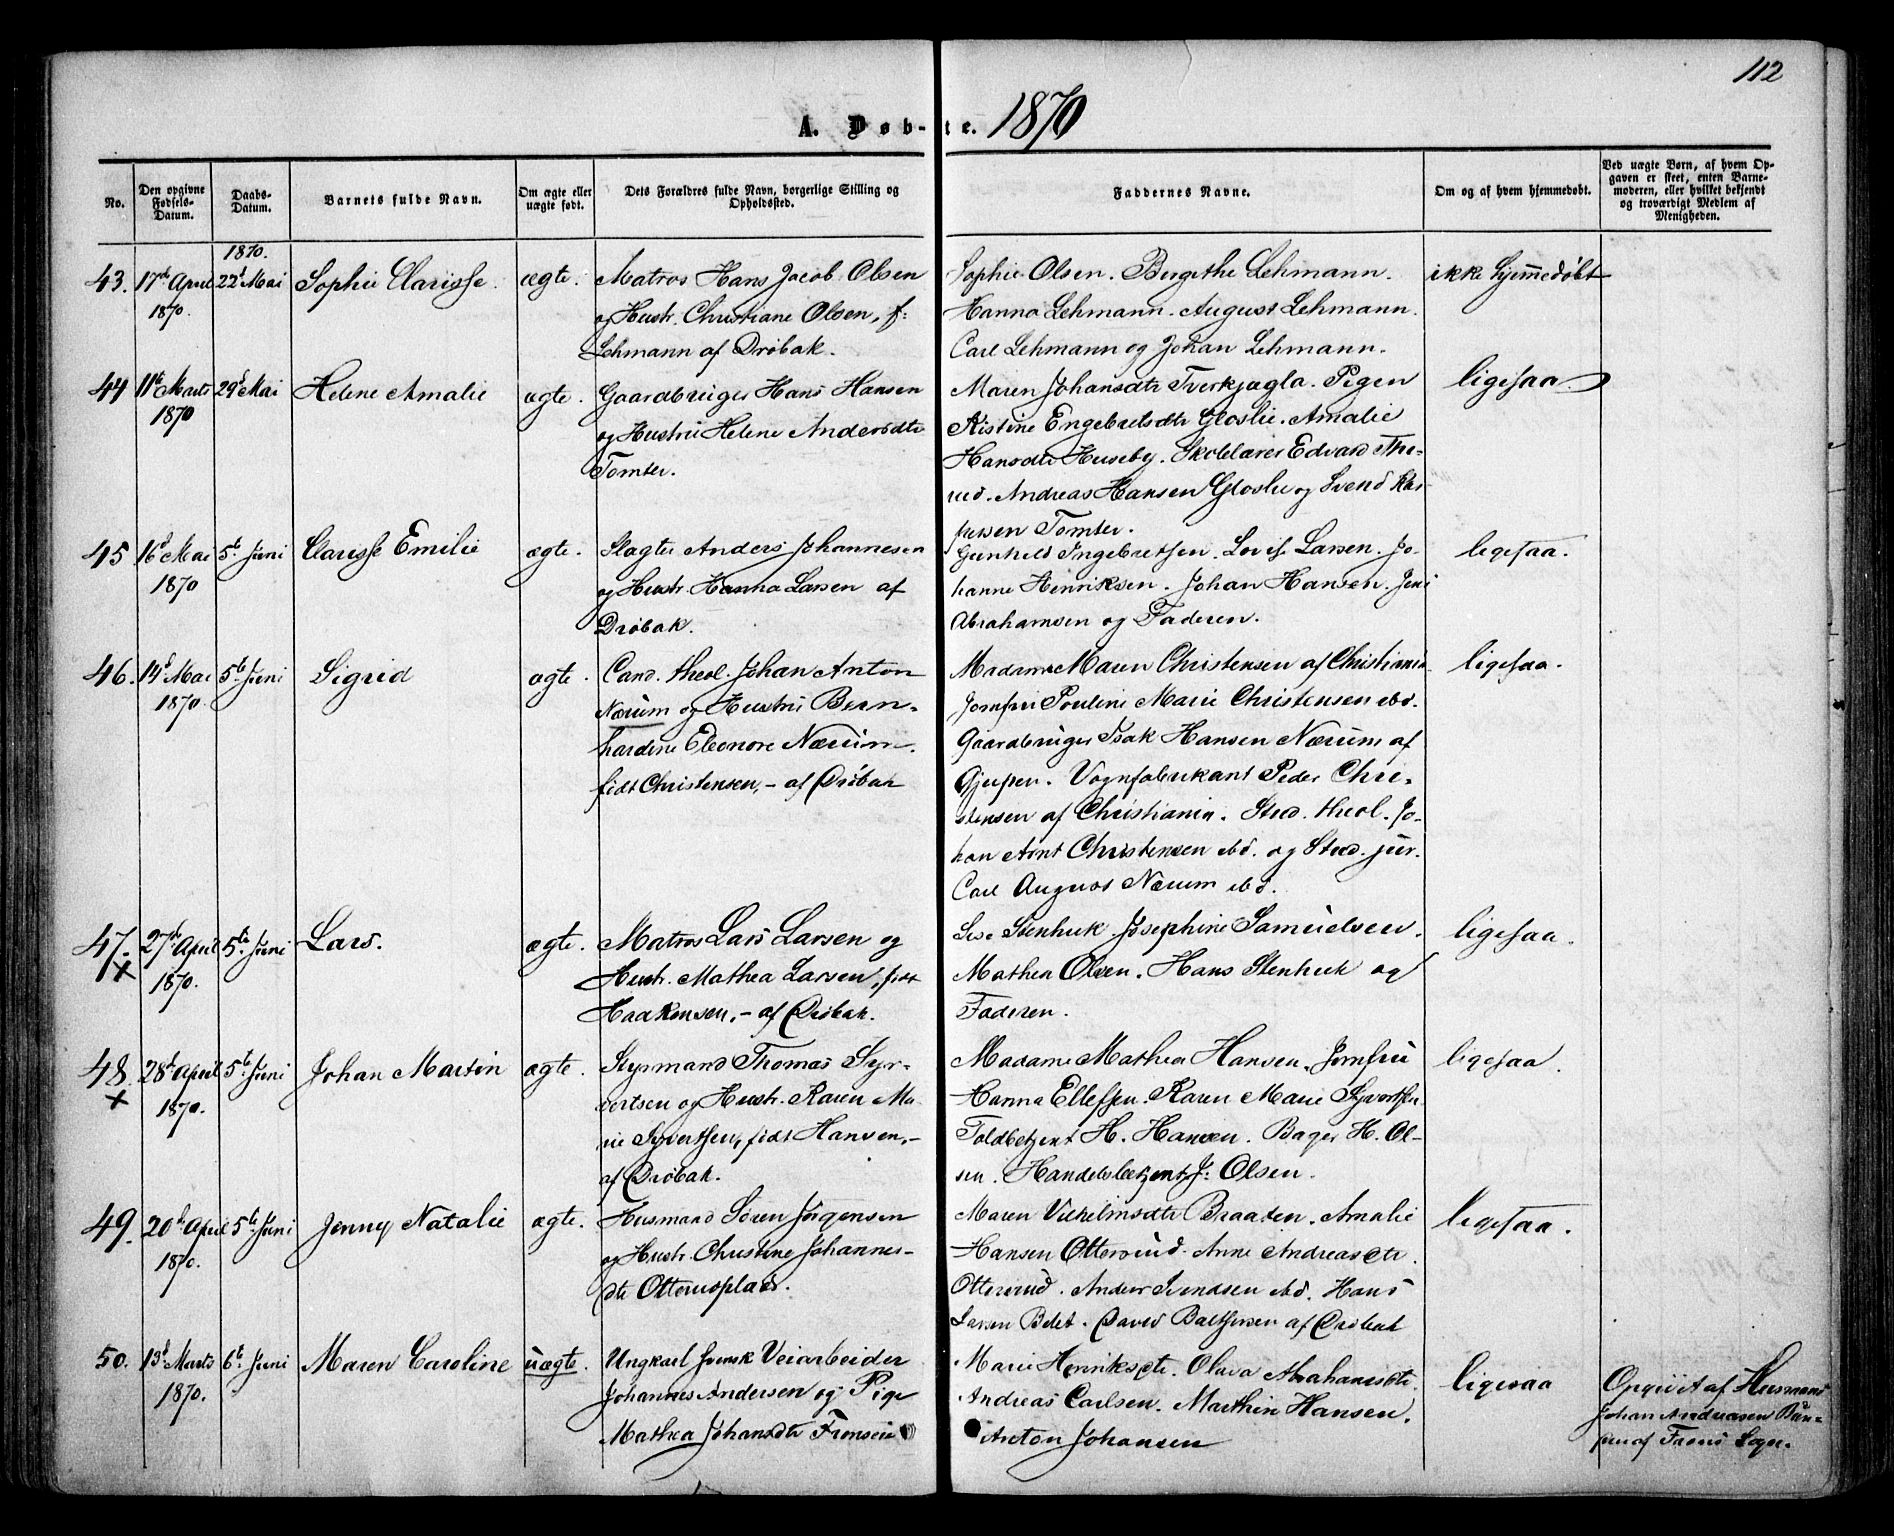 112
A. Døb- te. 1870
No.
Den opgivne Fødsels-Datum.
Daabs-Datum.
Barnets fulde Navn.
Om ægte eller uægte født.
Dets Forældres fulde Navn, borgerlige Stilling og Opholdssted.
Faddernes Navne.
Om og af hvem hjemmedøbt.
Ved uægte Børn, af hvem Opgaven er skeet, enten Barnemoderen, eller hvilket bekjendt og troværdigt Medlem af Menigheden.
1870.
43. 17de April 22d Mai Sophie Clarisse. ægte. Matros Hans Jacob Olsen Sophie Olsen. Bergithe Lehmann. ikke hjemmedøbt
1870. og Hustr. Christiane Olsen, f: Hanna Lehmann. August Lehmann.
Lehmann af Drøbak. Carl Lehmann og Johan Lehmann.
44 11te Marts 29d Mai Helene Amalie ægte. Gaardbruger Hans Hansen Maren Johansdtr Tverkjægla. Pigen ligesaa.
1870 og Hustru Helene Andersdtr Kistine Engebretsdtr Gloslie. Amalie
Tomter. Hansdtr Huseby. Skolelærer Edvard The-
rud. Andreas Hansen Gloslie og Svend Kas-
persen Tomter.
45 16d Mai 5te Juni Clarisse Emilie ægte. Slagter Anders Johannesen Gunhild Ingebretsen. Lovise Larsen. Jo- ligesaa.
1870 og Hustr. Hanna Larsen af hanne Henriksen. Johan Hansen. Jens
Drøbak. Abrahamsen og Faderen.
46. 14d Mai 5te Juni Sigrid ægte. Cand. theol. Johan Anton Madame Maren Christensen af Christiania ligesaa.
1870. Nærum og Hustru Bern- Jomfru Pouline Marie Christensen ibd.
hardine Eleonore Nærum. Gaardbruger Isak Hansen Nærum af
født Christensen, - af Drøbak Gjerpen. Vognfabrikant Peder Chri-
stensen af Christiania. Stud. theol. Jo-
han Arnt Christensen ibd. og Stud. jur.
Carl August Nærum ibd.
47. 27de April 5te Juni Lars. ægte. Matros Lars Larsen og Lise Stenhuk. Josephine Samuelsen. ligesaa.
x 1870. Hustr. Mathea Larsen, født Mathea Olsen. Hans Stenhuk og
Haakensen, - af Drøbak. Faderen.
48. 28d April 5te Juni Johan Martin ægte. Styrmand Thomas Syv- Madame Mathea Hansen. Jomfru ligesaa.
x 1870. ertsen og Hustr. Karen Ma- Hanna Ellefsen. Karen Marie Syvertsen
rie Syvertsen, født Hansen, - Toldbetjent H. Hansen. Bager H. Ol-
af Drøbak. sen. Handelsbetjent J: Olsen.
49. 20d April 5te Juni Jenny Natalie ægte. Husmand Søren Jørgensen Maren Vilhelmsdtr Braaten. Amalie ligesaa.
1870. og Hustr. Christine Johannes- Hansen Ottersrud. Anne Andreasdtr.
dtr Otterusplads. Ottersrud. Anders Svendsen ibd. Hans
Larsen Belet. David Baltzersen af Drøbak
50. 13d Marts 6te Juni Maren Caroline uægte. Ungkarl svensk Veiarbeider Marie Henriksdtr. Olava Abrahamsdtr. ligesaa Opgivet af Husmand
1870. Johannes Andersen og Pige Andreas Carlsen. Marthin Hansen. Johan Andreasen
Mathea Johansdtr Anton Johansen af Frons Sogn.